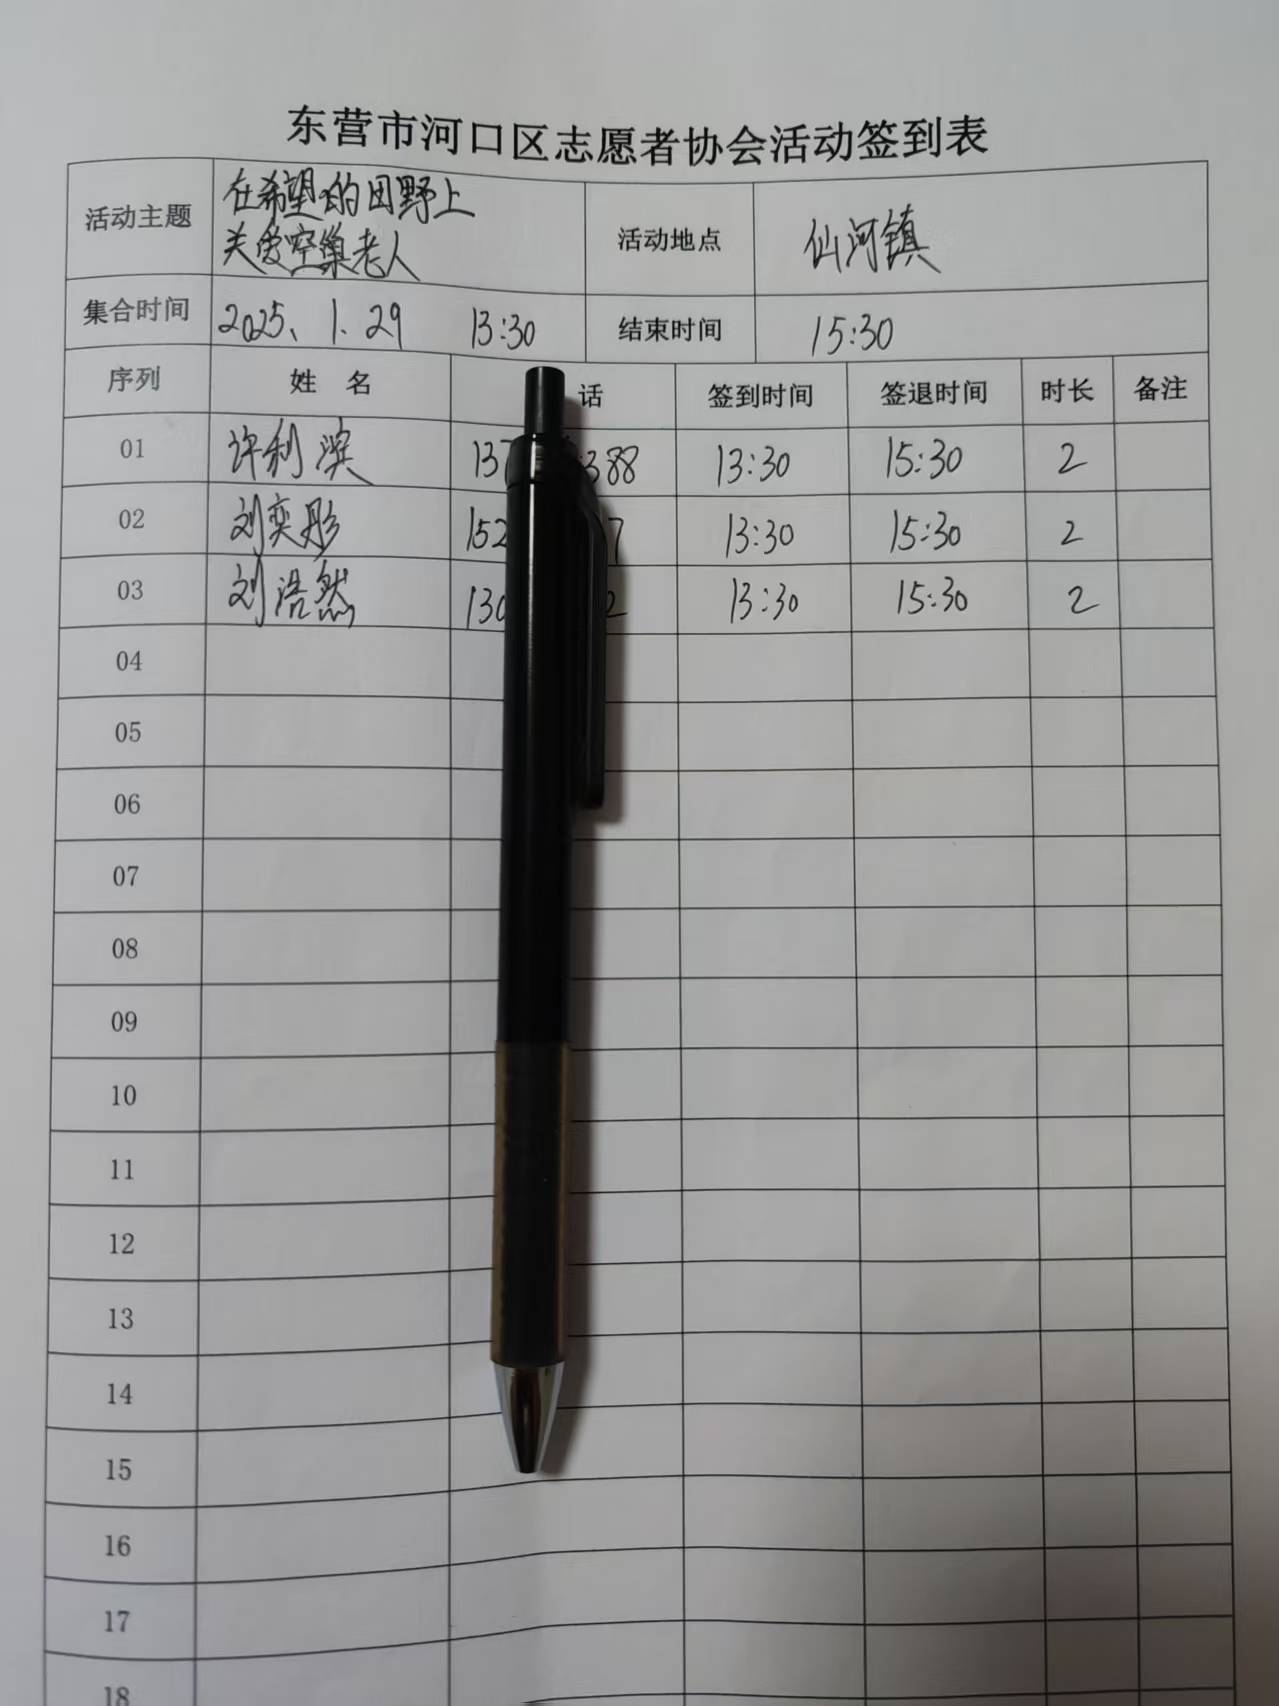 东营市河口区志愿者协会活动签到表
活动主题 在希望的田野上 关爱空巢老人 活动地点 仙河镇
集合时间 2025、1.29 13:30 结束时间 15:30
序列 姓 名 话 签到时间 签退时间 时长 备注
01 许利滨 137 388 13:30 15:30 2
02 刘奕彤 152 7 13:30 15:30 2
03 刘浩然 130 2 13:30 15:30 2
04
05
06
07
08
09
10
11
12
13
14
15
16
17
18